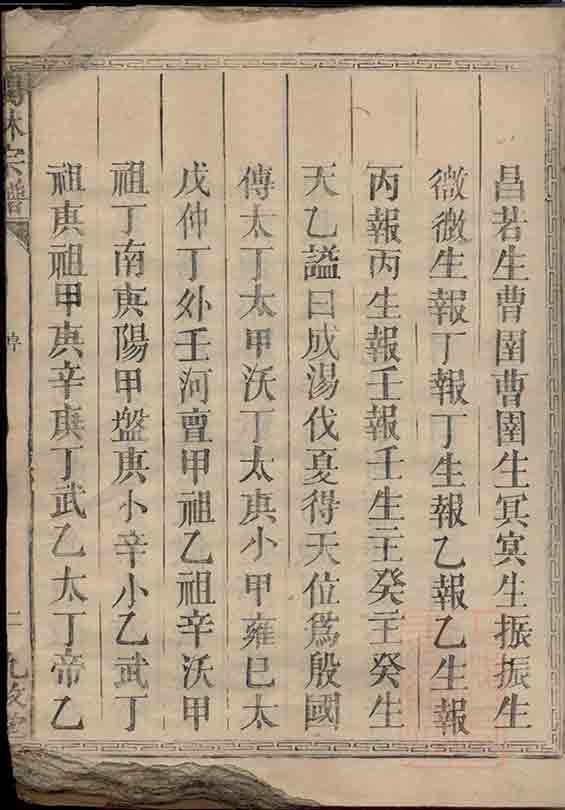 昌若生曹圉曹圉生冥冥生振振生
微微生報丁報丁生報乙報乙生報
丙報丙生報壬報壬生主癸主癸生
天乙謚曰成湯伐夏得天位爲殷國
傳太丁太甲沃丁太庚小甲雍巳太
戊仲丁外壬河亶甲祖乙祖辛沃甲
祖丁南庚陽甲盤庚小辛小乙武丁
祖庚祖甲庚辛庚丁武乙太丁帝乙
林宗譜
二